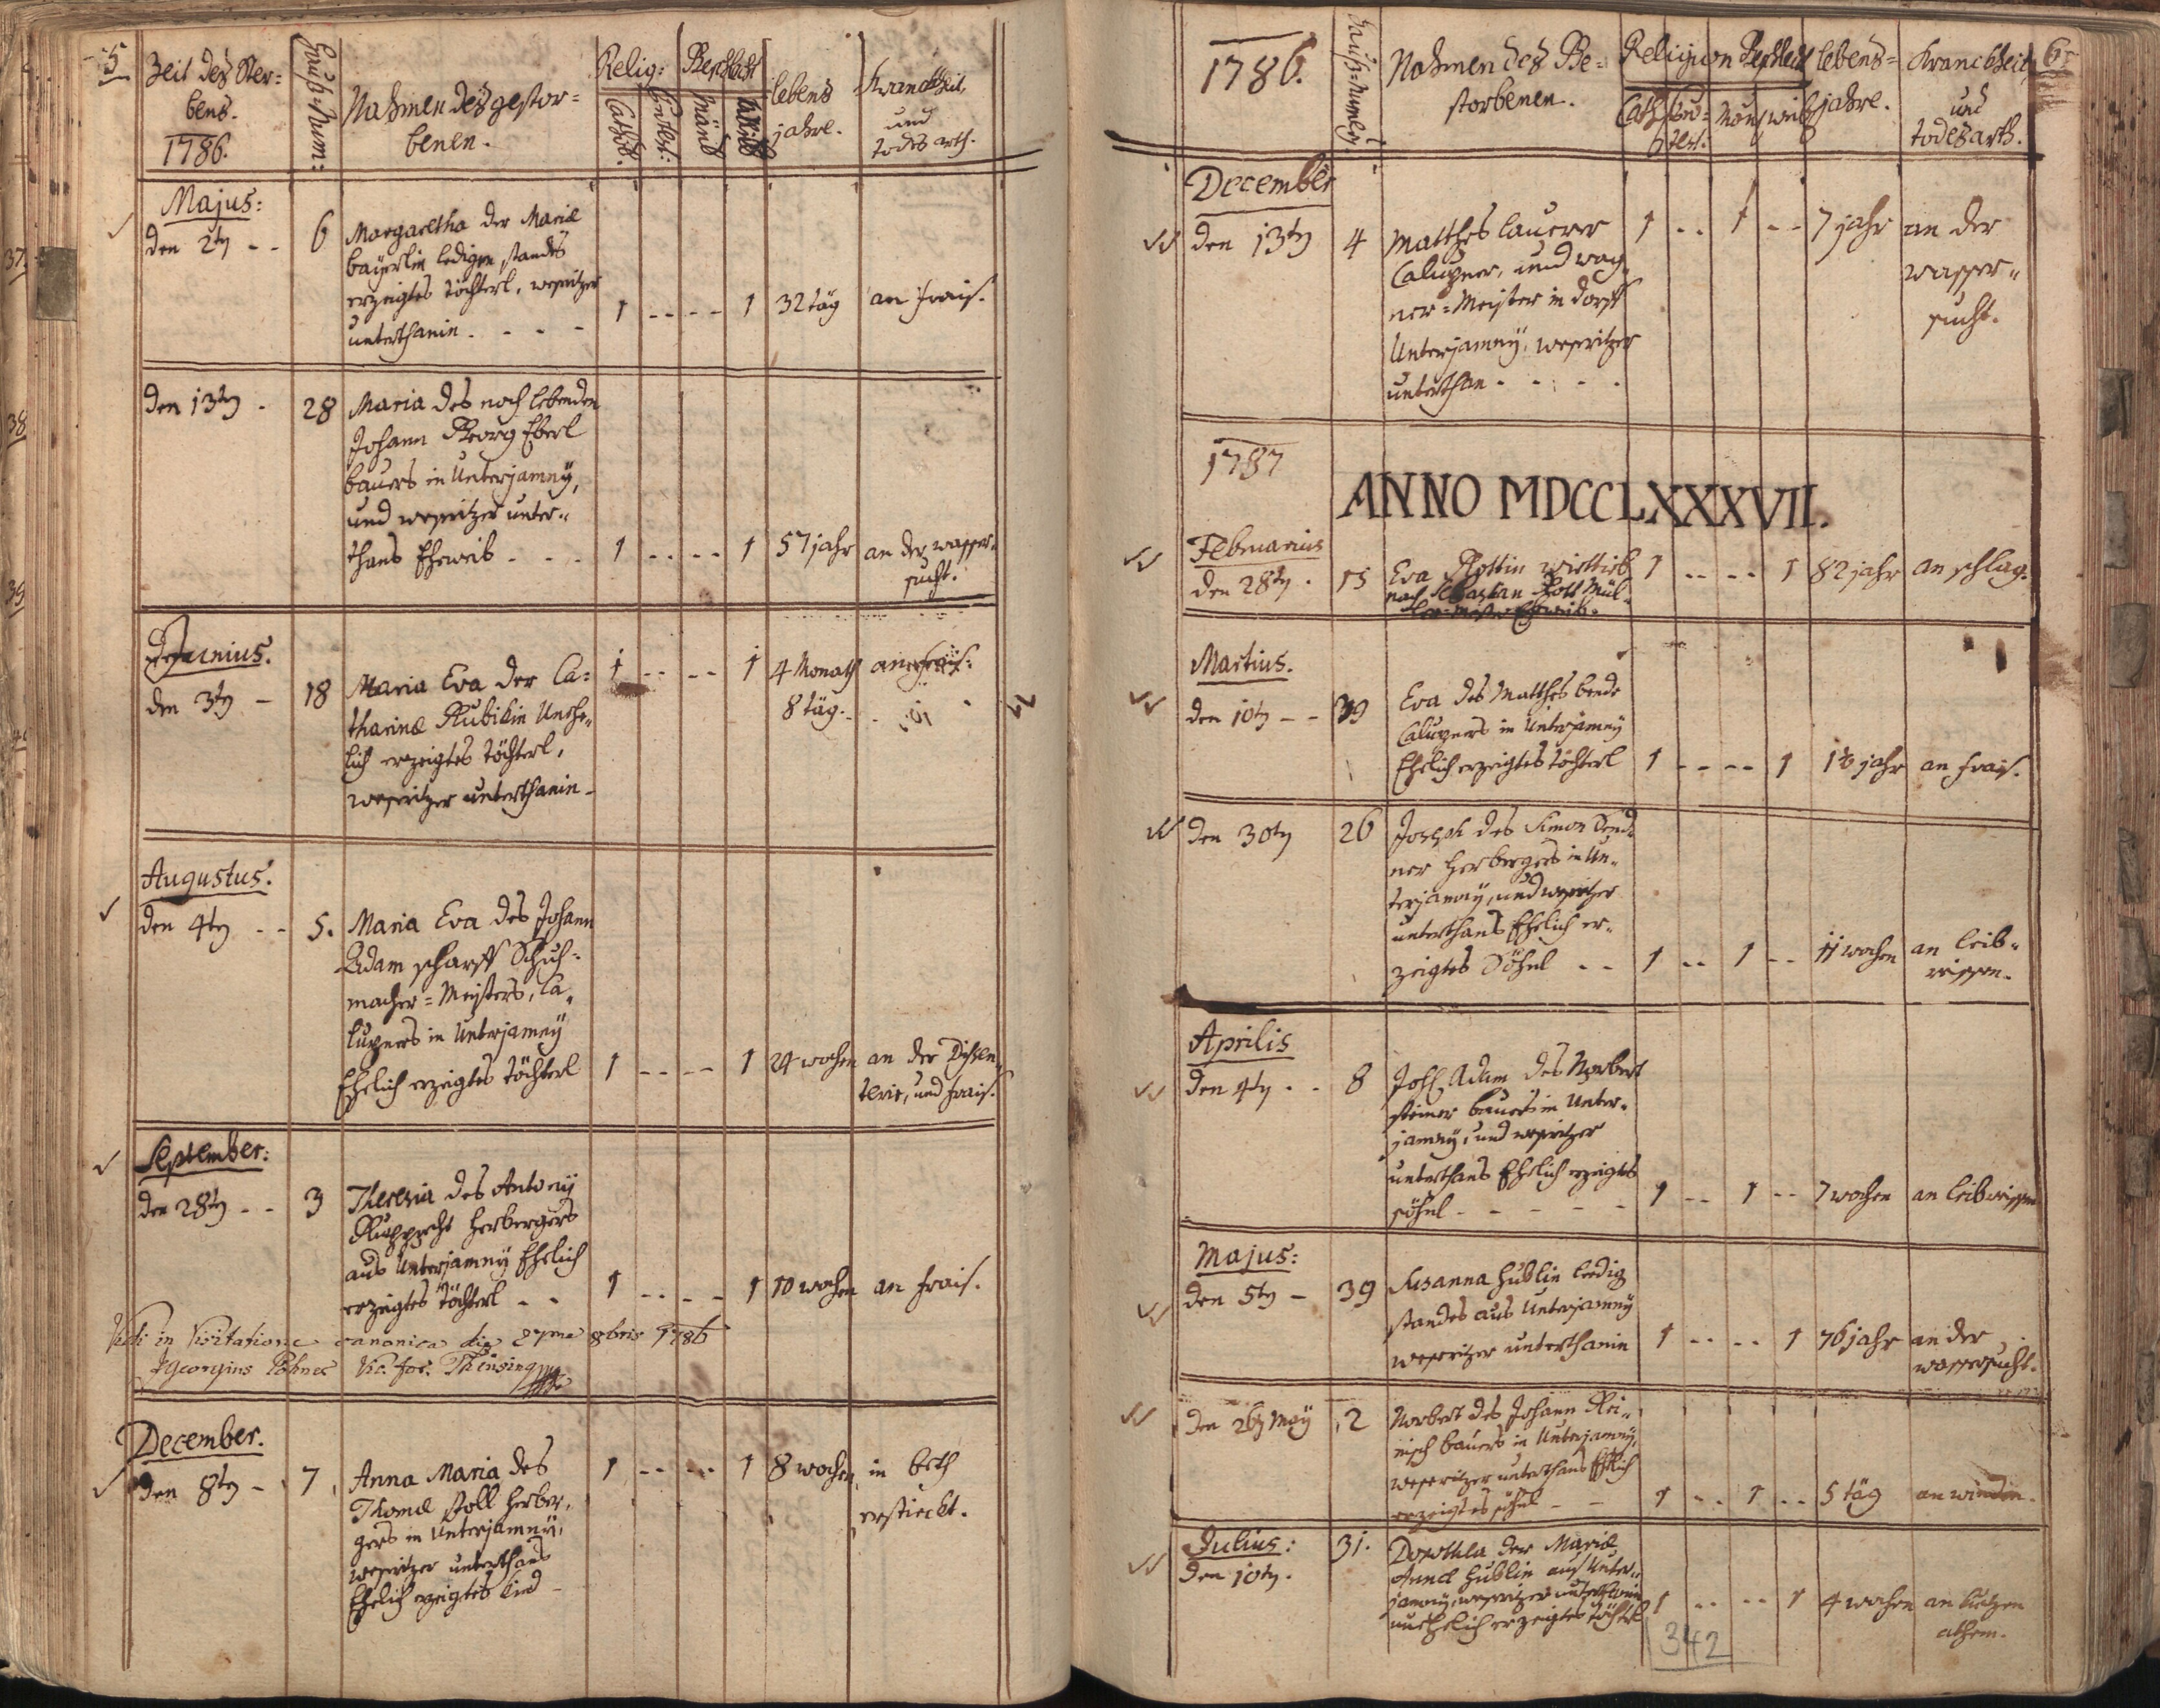 5
Zeit des Ster=
bens.
1786.
Hauß=Num:
Nahmen des gestor=
benen.
Relig:
Cathol:
Protest:
Geschlecht
Mänl
Weibl
lebens
jahre.
Kranckheit,
und
todts arth.
Majus:
den 2tn - -
6
Margaretha der Mariæ
baÿerlin ledigen standes
erzeigtes töchterl, weseritzer
unterthanin. - - -
1 - - - - 1
32 täg
an frais.
den 13tn -
28
Maria des noch lebenden
Johann Georg Eberl
bauers in Unterjamnÿ,
und weseritzer unter=
thans Eheweib - - -
1 - - - - 1
57 jahr
an der wasser=
sucht.
Junius.
den 3tn -
18
Maria Eva der Ca=
tharinæ Kubikin Unehe=
lich erzeigtes töchterl,
weseritzer unterthanin -
1 - - - - 1
4 Monath
8 täg.
an frais.
Augustus.
den 4tn - -
5.
Maria Eva des Johann
Adam scharff Schuh=
macher=Meisters, Ca=
lupners in Unterjamnÿ
Ehelich erzeigtes töchterl
1 - - - - 1
24 wochen
an der Dÿsen
terie, und frais.
September:
den 28tn - -
3
Theresia des Antonÿ
Rupprecht herbergers
aus Unterjamnÿ Ehelich
erzeigtes töchterl - -
1 - - - - 1
10 wochen
an frais.
Vidi in Visitatione canonica die 27ma 8bris 1786
Georgius Vic. for.
December.
den 8tn -
7
Anna Maria des
Thomæ stoll herber=
gers in Unterjamnÿ,
weseritzer unterthans
Ehelich erzeigtes kind -
1 - - - - 1
8 wochen
in beth
ersticckt.
1786.
Hauß=numer.
Nahmen des Ge=
storbenen.
Religion
Cath
Pro=
test:
Geschlecht
Män
weib
lebens=
jahre.
Kranckheit,
und
todes arth.
6
December
den 13tn
4
Matthes lauerer
Calupner, und wag=
ner=Meister in dorff
Unterjamnÿ, weseritzer
unterthan - - - -
1 - - 1 - -
7 jahr
an der
wasser=
sucht.
1787
ANNO MDCCLXXXVII.
Februarius
den 28tn.
15
Eva Rottin wittib
nach Sebastian Rott Mül=
1 - - - - 1
82 jahr
an schlag.
Martius.
den 10tn - -
39
Eva des Matthes bende
Calupners in Unterjamnÿ
Ehelich erzeigtes töchterl
1 - - - - 1
an frais.
den 30tn
26
Joseph des Simon
ner herbergers in Un=
terjamnÿ, und weseritzer
unterthans Ehelich er=
zeigtes Söhnl - -
1 - - 1 - -
11 wochen
an leib=
reissen.
Aprilis
den 4tn - -
8
Joh Adam des Norbert
steiner bauers in Unter=
jamnÿ, und weseritzer
unterthans Ehelich erzeigtes
söhnl - - - - -
1 - - 1 - -
7 wochen
an leibreissen
Majus:
den 5tn -
39
Susanna Hublin ledig
standes aus Unterjamnÿ
weseritzer unterthanin
1 - - - - 1
76 jahr
an der
wassersucht.
den 26tn Maÿ
2
Norbert des Johann Rei=
nisch bauers in Unterjamnÿ,
weseritzer unterthans Ehelich
erzeigtes söhnl - -
1 - - 1 - -
5 täg
an winden.
Julius:
den 10tn.
31.
Dorothea der Mariæ
Annæ Hublin aus Unter=
jamnÿ, weseritzer unterthanin
unehelich erzeigtes töchterl
1 - - - - 1
4 wochen
an kurtzen
athem.
342
37
38
39